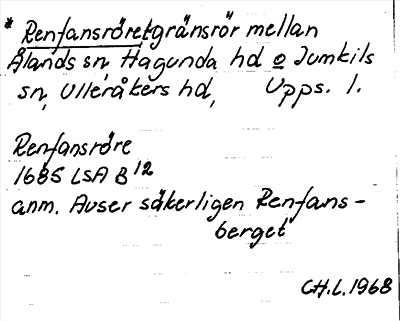 * Renfansröret gränsrör mellan
Ålands sn, Hagunda hd o Jumkils
sn, Ulleråkers hd, Upps. l.
Renfansröre
1685 LSA B 12
anm. Avser säkerligen Renfans-
berget
CH.L. 1968